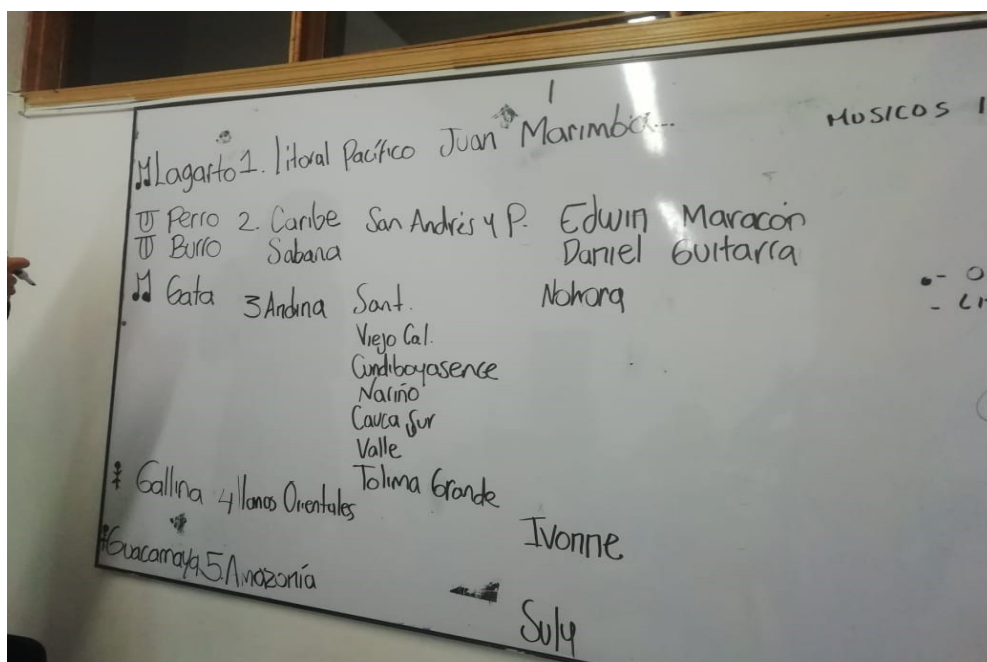 Lagarto 1. litoral Pacífico Juan Marimba...
MUSICOS
Perro 2. Caribe San Andrés y P. Edwin Maracón
Burro Sabana Daniel Guitarra
Gata 3 Andina Sant. Nohora
Viejo Cal.
Cundiboyasence
Nariño
Cauca Sur
Valle
Tolima Grande
Gallina 4 llanos Orientales
Ivonne
Guacamaya 5. Amazonía
Suly